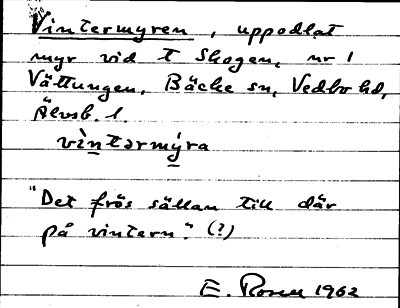 Vintermyren, uppodlat
myr vid t Skogen, nr 1
Vättungen, Bäcke sn, Vedbo hd,
Älvsb. l.
vìntərmy̍ra
"Det frös sällan till där
på vintern." (?)
E. Rosen 1962